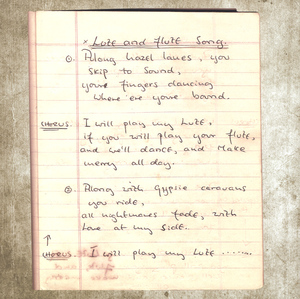 * Lute and flute Song.
①. Along hazel lanes, you
Skip to Sound,
your fingers dancing
where ere your bound.
CHORUS. I will play my Lute,
if you will play your flute,
and we'll dance, and make
merry all day.
② Along with Gypsie caravans
you ride,
all nightmares fade, with
Love at my side.
↑
CHORUS. I will play my Lute ........